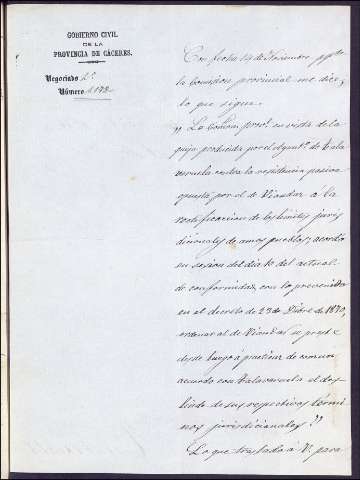 GOBIERNO CIVIL
DE LA
PROVINCIA DE CÁCERES.
Negociado 2º
Número 4192
Con fecha 14 de Noviembre ppdo
la Comisión provincial me dice
lo que sigue.
"La Comon provl en vista de la
queja producida por el Ayuntº de Tala
veruela contra la resistencia pasiva
opuesta por el de Viandar a la
rectificacion de los limites juris
diccionales de amos pueblos, acordó
en sesion del dia 10 del actual
de conformidad, con lo prevenido
en el decreto de 23 de Dibre de 1870,
ordenar al de Viandar se preste
desde luego a practicar de comun
acuerdo con Talaveruela el des
linde de sus respectivos térmi
nos jurisdicionales"
Lo que traslado á V. para